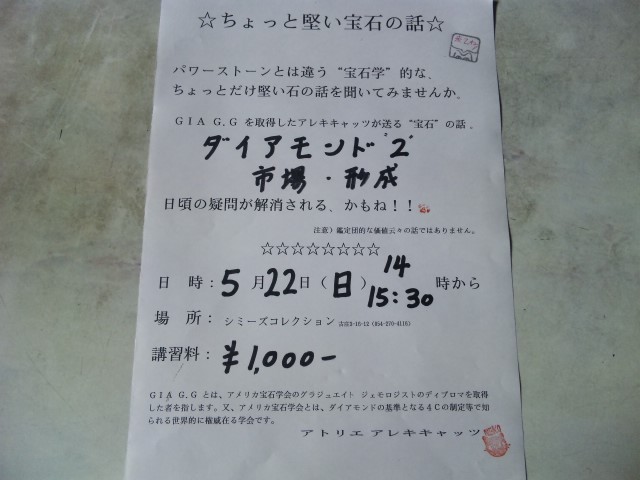 ☆ちょっと堅い宝石の話☆
パワーストーンとは違う“宝石学”的な、
ちょっとだけ堅い石の話を聞いてみませんか。
GIA G,Gを取得したアレキキャッツが送る“宝石”の話。
ダイアモンド“2”
市場・形成
日頃の疑問が解消される、かもね!!
注意)鑑定団的な価値云々の話ではありません。
☆☆☆☆☆☆☆☆
日 時:5月22日(日)14 15:30時から
場 所:シミーズコレクション 古庄2-16-12(054-270-4116)
講習料:¥1,000-
GIA G,Gとは、アメリカ宝石学会のグラジュエイト ジェモロジストのディプロマを取得
した者を指します。又、アメリカ宝石学会とは、ダイアモンドの基準となる4Cの制定等で知
られる世界的に権威在る学会です。
アトリエ アレキキャッツ